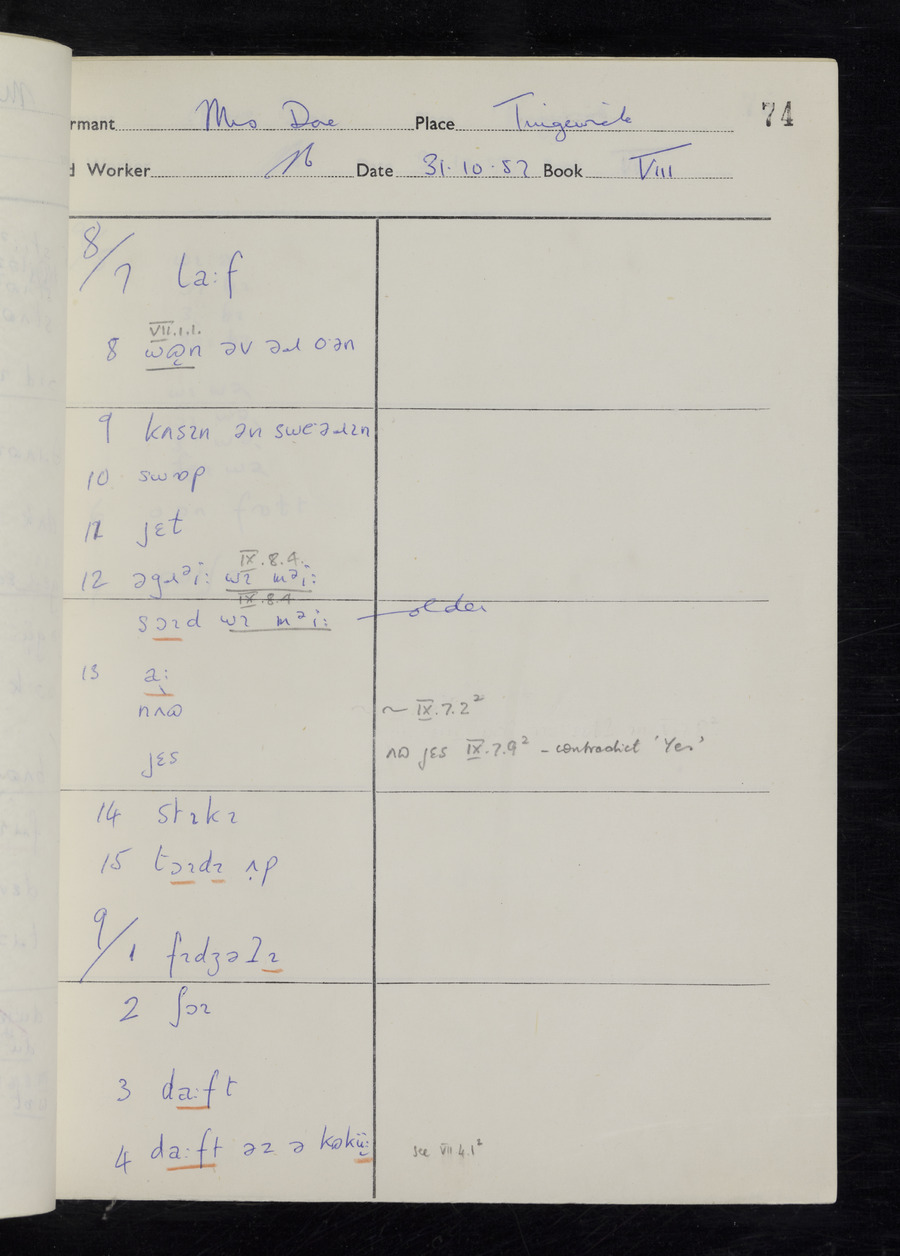 rmant Mrs Doe Place Tingewick 74
d Worker Date 31.10.52 Book VIII
8/7 laːf
VII.1.1.
8 əv əɹ oˑən
9 kʌsɪn ən sweˑəɹɪn
10 swɒp
11 jɛt
IX.8.4.
12 əgɹᵊiː wɪ mᵊiː
IX.8.4
sɔɪd wɪ mᵊiː — older
13 aː
nʌɷ ~ IX.7.2²
jɛs ʌɷ jɛs IX.7.9² – contradict 'Yes'
14 stɪkɪ
15 tɔɪdɪ ʌp
9/1 fɪdʒəlɪ
2 ʃɔɪ
3 daːft
4 daːft əz ə kɷküː see VII 4.1²